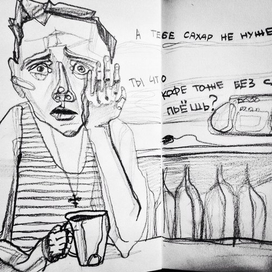 А ТЕБЕ САХАР НЕ НУЖЕ
ТЫ ЧТО
КОФЕ ТОЖЕ БЕЗ С
ПЬЁШЬ?